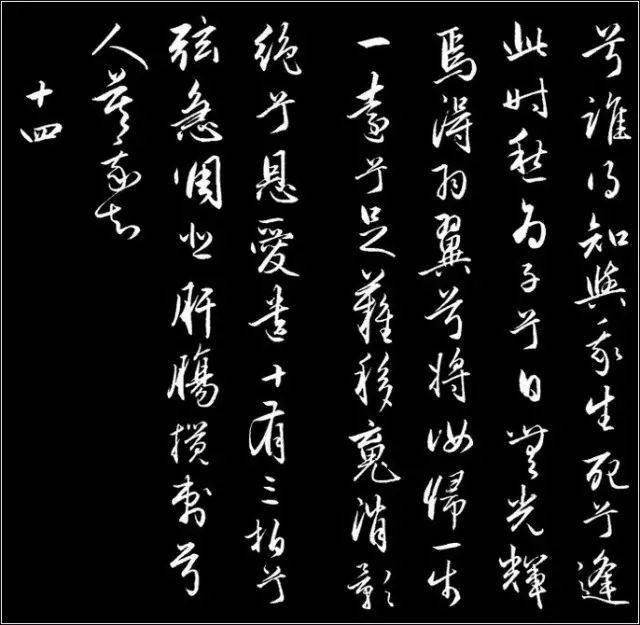 兮誰得知與我生死兮逢
此時愁為子兮日無光輝
焉得羽翼兮將汝歸一步
一遠兮足難移魂消影
絕兮恩愛遺十有三拍兮
弦急調悲肝腸攪刺兮
人莫我知
十四